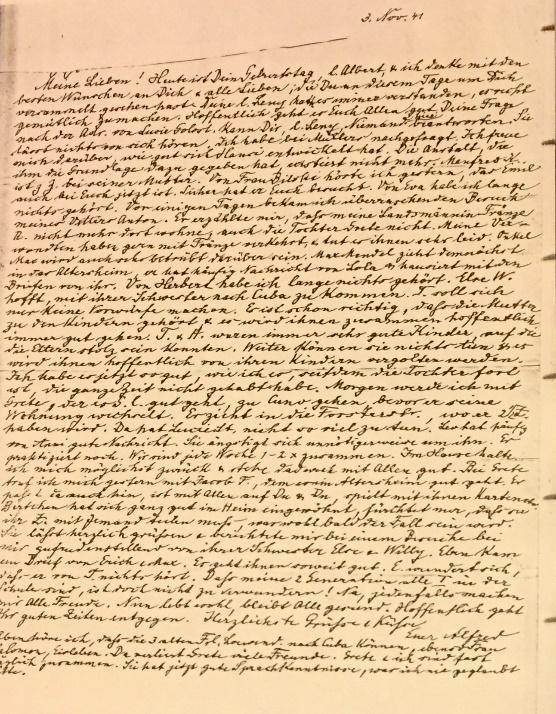 3. Nov. 41
Meine Lieben! Heute ist Dein Geburtstag, l. Albert, u. ich denke mit den
besten Wünschen an Dich u. alle Lieben, die Du an diesem Tage um Dich
versammelt gesehen hast. Deine l. hat es immer verstanden, es recht
gemütlich zu machen. Hoffentlich geht es Euch Allen gut. Deine Frage
nach der Adr. von Lucie kann Dir, l. Niemand beantworten. Sie
nichts von sich hören. Ich habe bei nachgefragt. Ich freue
mich darüber, wie gut sich Hansi entwickelt hat. Die Anstalt, die
ihm die Grundlage dazu gegeben hat, existiert nicht mehr. Manfred K.
ist z. Z. bei seiner Mutter. Von Frau hörte ich gestern, das Emil
auch bei Euch jetzt ist. Sicher hat er Euch besucht. Von Eva habe ich lange
nichts gehört. Vor einigen Tagen bekam ich überraschenden Besuch
meines Vetters Anton. Er erzählte mir, dass meine Landsmännin Franze
A. nicht mehr dort wohne, auch die Tochter Grete nicht. Meine Ver-
wandten haben gern mit Franze verkehrt, u. tut es ihnen sehr leid. Onkel
Max wird auch sehr betrübt darüber sein. zieht demnächst
in das Altersheim, er hat häufig Nachricht von Lola u. hausiert mit den
Briefen von ihr. Von Herbert habe ich lange nichts gehört. Else W.
hofft, mit ihrer Schwester nach Cuba zu kommen. J. soll sich
nur keine Vorwürfe machen. Es ist schon richtig, dass die Mutter
zu den Kindern gehört u. es wird ihnen zusammen hoffentlich
immer gut gehen. J. u. A. waren immer sehr gute Kinder, auf die
die Eltern stolz sein konnten. Weiter können sie nichts tun u. es
wird ihnen hoffentlich von ihren Kindern vergolten werden.
Ich habe es jetzt so gut, wie ich es, seitdem die Tochter fort
ist, die ganze Zeit nicht gehabt habe. Morgen werde ich mit
Grete, der es s. l. gut geht, zu gehen, bevor er seine
Wohnung wechselt. Er zieht in die wo er 2
haben wird. Da hat nicht so viel zu tun. Leo hat häufig
von gute Nachricht. Sie ängstigt sich unnötigerweise um ihn. Er
praktiziert noch. Wir sind jede Woche 1-2 x zusammen. Im Hause halte
ich mich möglichst zurück u. stehe dadurch mit Allen gut. Bei Grete
traf ich mich gestern mit Jacob F., dem es im Altersheim gut geht. Er
passt ja auch hin, ist mit Allen auf Du u. Du, spielt mit ihnen Karten.
Bertchen hat sich ganz gut im Heim eingewöhnt, fürchtet nur, dass sie
ihr Z. mit Jemand teilen muss, was wohl bald der Fall sein wird.
Sie lässt herzlich grüssen u. berichtete mir bei einem Besuche bei
mir zufriedenstellend von ihrer Schwester Else u. Willy. Eben kam
ein Brief von Erich u. Max. Es geht ihnen soweit gut. E. wundert sich,
dass er von J. nichts hört. Dass meine 2. Generation alle in der
Schule sind, ist doch nicht zu verwundern! Na, jedenfalls machen
mir Alle Freude. Nun lebt wohl, bleibt Alle gesund. Hoffentlich geht
Ihr guten Zeiten entgegen. Herzlichste Grüsse u. Küsse
Euer Alfred
Eben höre ich, dass die 3 alten Frl. nach Cuba können, ebenso Frau
Eisleben. Da verliert Grete viele Freunde. Grete u. ich sind fast
täglich zusammen. Sie hat jetzt gute Sprachkenntnisse, was ich nie geglaubt
hätte.